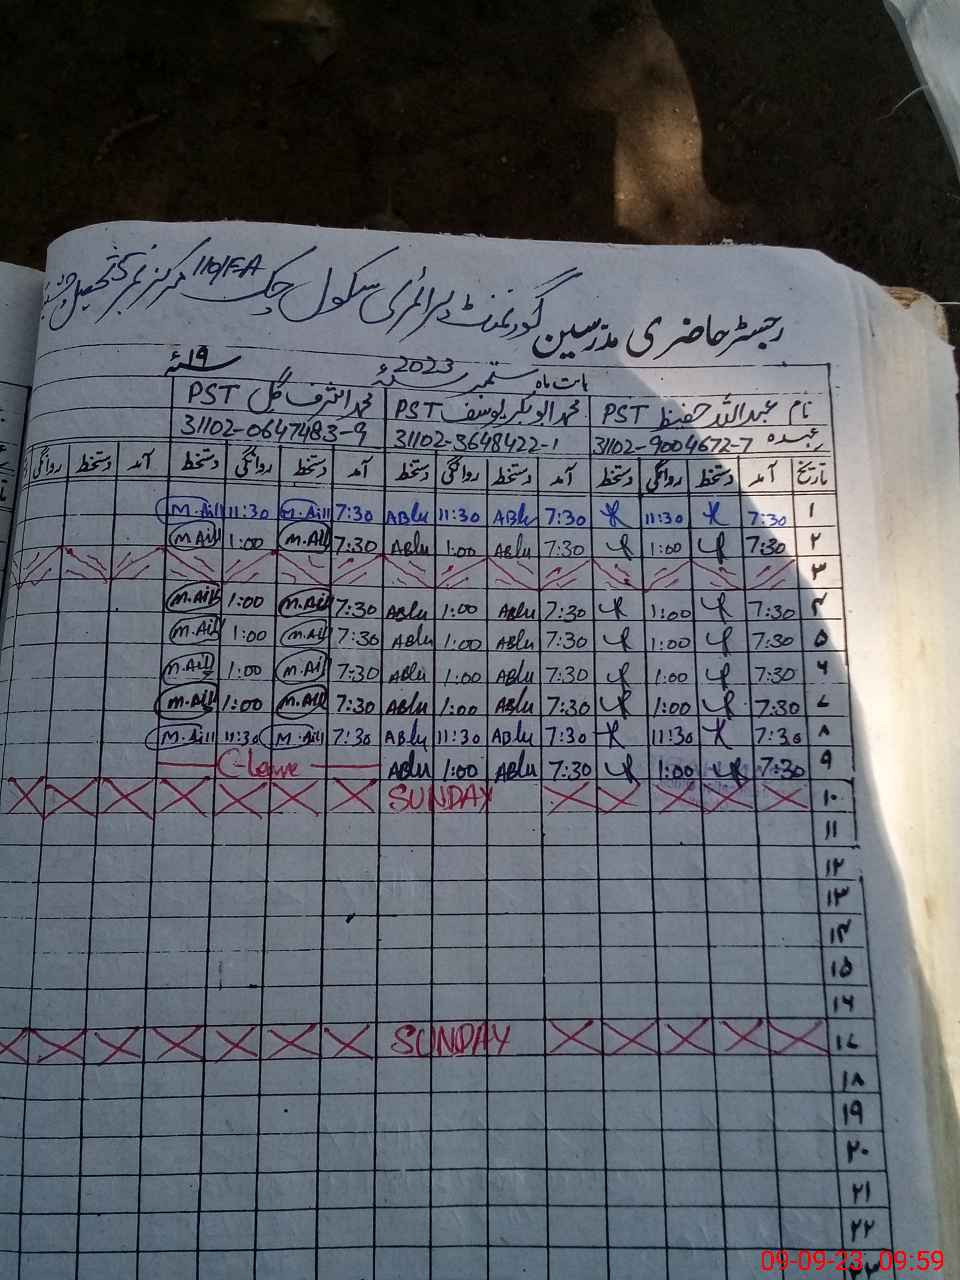 رجسٹر حاضری مدرسین گورنمنٹ پرائمری سکول چک 110/F.A مرکز نمبر 5 تحصیل
بابت ماہ ستمبر 2023 سنہ ۱۹ سنہ
نام عبداللہ حفیظ PST محمد ابوبکر یوسف PST محمد اشرف گل PST
عہدہ 31102-9004672-7 31102-3648422-1 31102-0647483-9
تاریخ آمد دستخط روانگی دستخط آمد دستخط روانگی دستخط آمد دستخط روانگی دستخط آمد دستخط روانگی
۱ 7:30 11:30 7:30 ABlu 11:30 ABlu 7:30 M.Aill 11:30 M.Aill
۲ 7:30 1:00 7:30 ABlu 1:00 ABlu 7:30 M.Aill 1:00 M.Aill
۳
۴ 7:30 1:00 7:30 ABlu 1:00 ABlu 7:30 M.Aill 1:00 M.Aill
۵ 7:30 1:00 7:30 ABlu 1:00 ABlu 7:30 M.Aill 1:00 M.Aill
۶ 7:30 1:00 7:30 ABlu 1:00 ABlu 7:30 M.Aill 1:00 M.Aill
۷ 7:30 1:00 7:30 ABlu 1:00 ABlu 7:30 M.Aill 1:00 M.Aill
۸ 7:30 11:30 7:30 ABlu 11:30 ABlu 7:30 M.Aill 11:30 M.Aill
۹ 7:30 1:00 7:30 ABlu 1:00 ABlu C-leave
۱۰ SUNDAY
۱۱
۱۲
۱۳
۱۴
۱۵
۱۶
۱۷ SUNDAY
۱۸
۱۹
۲۰
۲۱
۲۲
۲۳
09-09-23 09:59